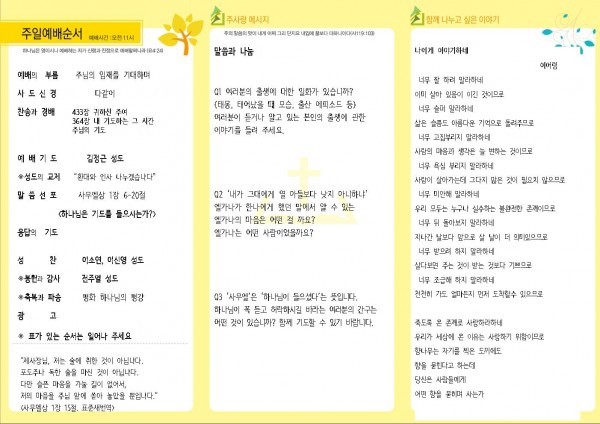 주일예배순서 예배시간 : 오전 11시
하나님은 영이시니 예배하는 자가 신령과 진정으로 예배할찌니라 (요4:24)
예배의 부름 주님의 임재를 기대하며
사 도 신 경 다같이
찬송과 경배 433장 귀하신 주여
364장 내 기도하는 그 시간
주님의 기도
예 배 기 도 김정근 성도
※성도의 교제 "환대와 인사 나누겠습니다"
말 씀 선 포 사무엘상 1장 6-20절
<하나님은 기도를 들으시는가?>
응답의 기도
성 찬 이소연, 이신영 성도
※봉헌과 감사 전주열 성도
※축복과 파송 평화 하나님의 평강
광 고
※ 표가 있는 순서는 일어나 주세요
"제사장님, 저는 술에 취한 것이 아닙니다.
포도주나 독한 술을 마신 것이 아닙니다.
다만 슬픈 마음을 가눌 길이 없어서,
저의 마음을 주님 앞에 쏟아 놓았을 뿐입니다."
(사무엘상 1장 15절, 표준새번역)
주사랑 메시지
주의 말씀의 맛이 내게 어찌 그리 단지요 내입에 꿀보다 더하니이다(시119:103)
말씀과 나눔
Q1 여러분의 출생에 대한 일화가 있습니까?
(태몽, 태어났을 때 모습, 출산 에피소드 등)
여러분이 듣거나 알고 있는 본인의 출생에 관한
이야기를 들려 주세요.
Q2 '내가 그대에게 열 아들보다 낫지 아니하냐'
엘가나가 한나에게 했던 말에서 알 수 있는
엘가나의 마음은 어떤 걸 까요?
엘가나는 어떤 사람이었을까요?
Q3 '사무엘'은 '하나님이 들으셨다'는 뜻입니다.
하나님이 꼭 듣고 허락하시길 바라는 여러분의 간구는
어떤 것이 있습니까? 함께 기도할 수 있기 바랍니다.
함께 나누고 싶은 이야기
나에게 이야기하네
이어령
너무 잘 하려 말라하네
이미 살아 있음이 이긴 것이므로
너무 슬퍼 말라하네
삶은 슬픔도 아름다운 기억으로 돌려주므로
너무 고집부리지 말라하네
사람의 마음과 생각은 늘 변하는 것이므로
너무 욕심 부리지 말라하네
사람이 살아가는데 그다지 많은 것이 필요치 않으므로
너무 미안해 말라하네
우리 모두는 누구나 실수하는 불완전한 존재이므로
너무 뒤 돌아보지 말라하네
지나간 날보다 앞으로 살 날이 더 의미있으므로
너무 받으려 하지 말라하네
살다보면 주는 것이 받는 것보다 기쁘므로
너무 조급해 하지 말라하네
천천히 가도 얼마든지 먼저 도착할수 있으므로
죽도록 온 존재로 사랑하라하네
우리가 세상에 온 이유는 사랑하기 위함이므로
향나무는 자기를 찍은 도끼에도
향을 묻힌다고 하는데
당신은 사람들에게
어떤 향을 묻히며 사는가